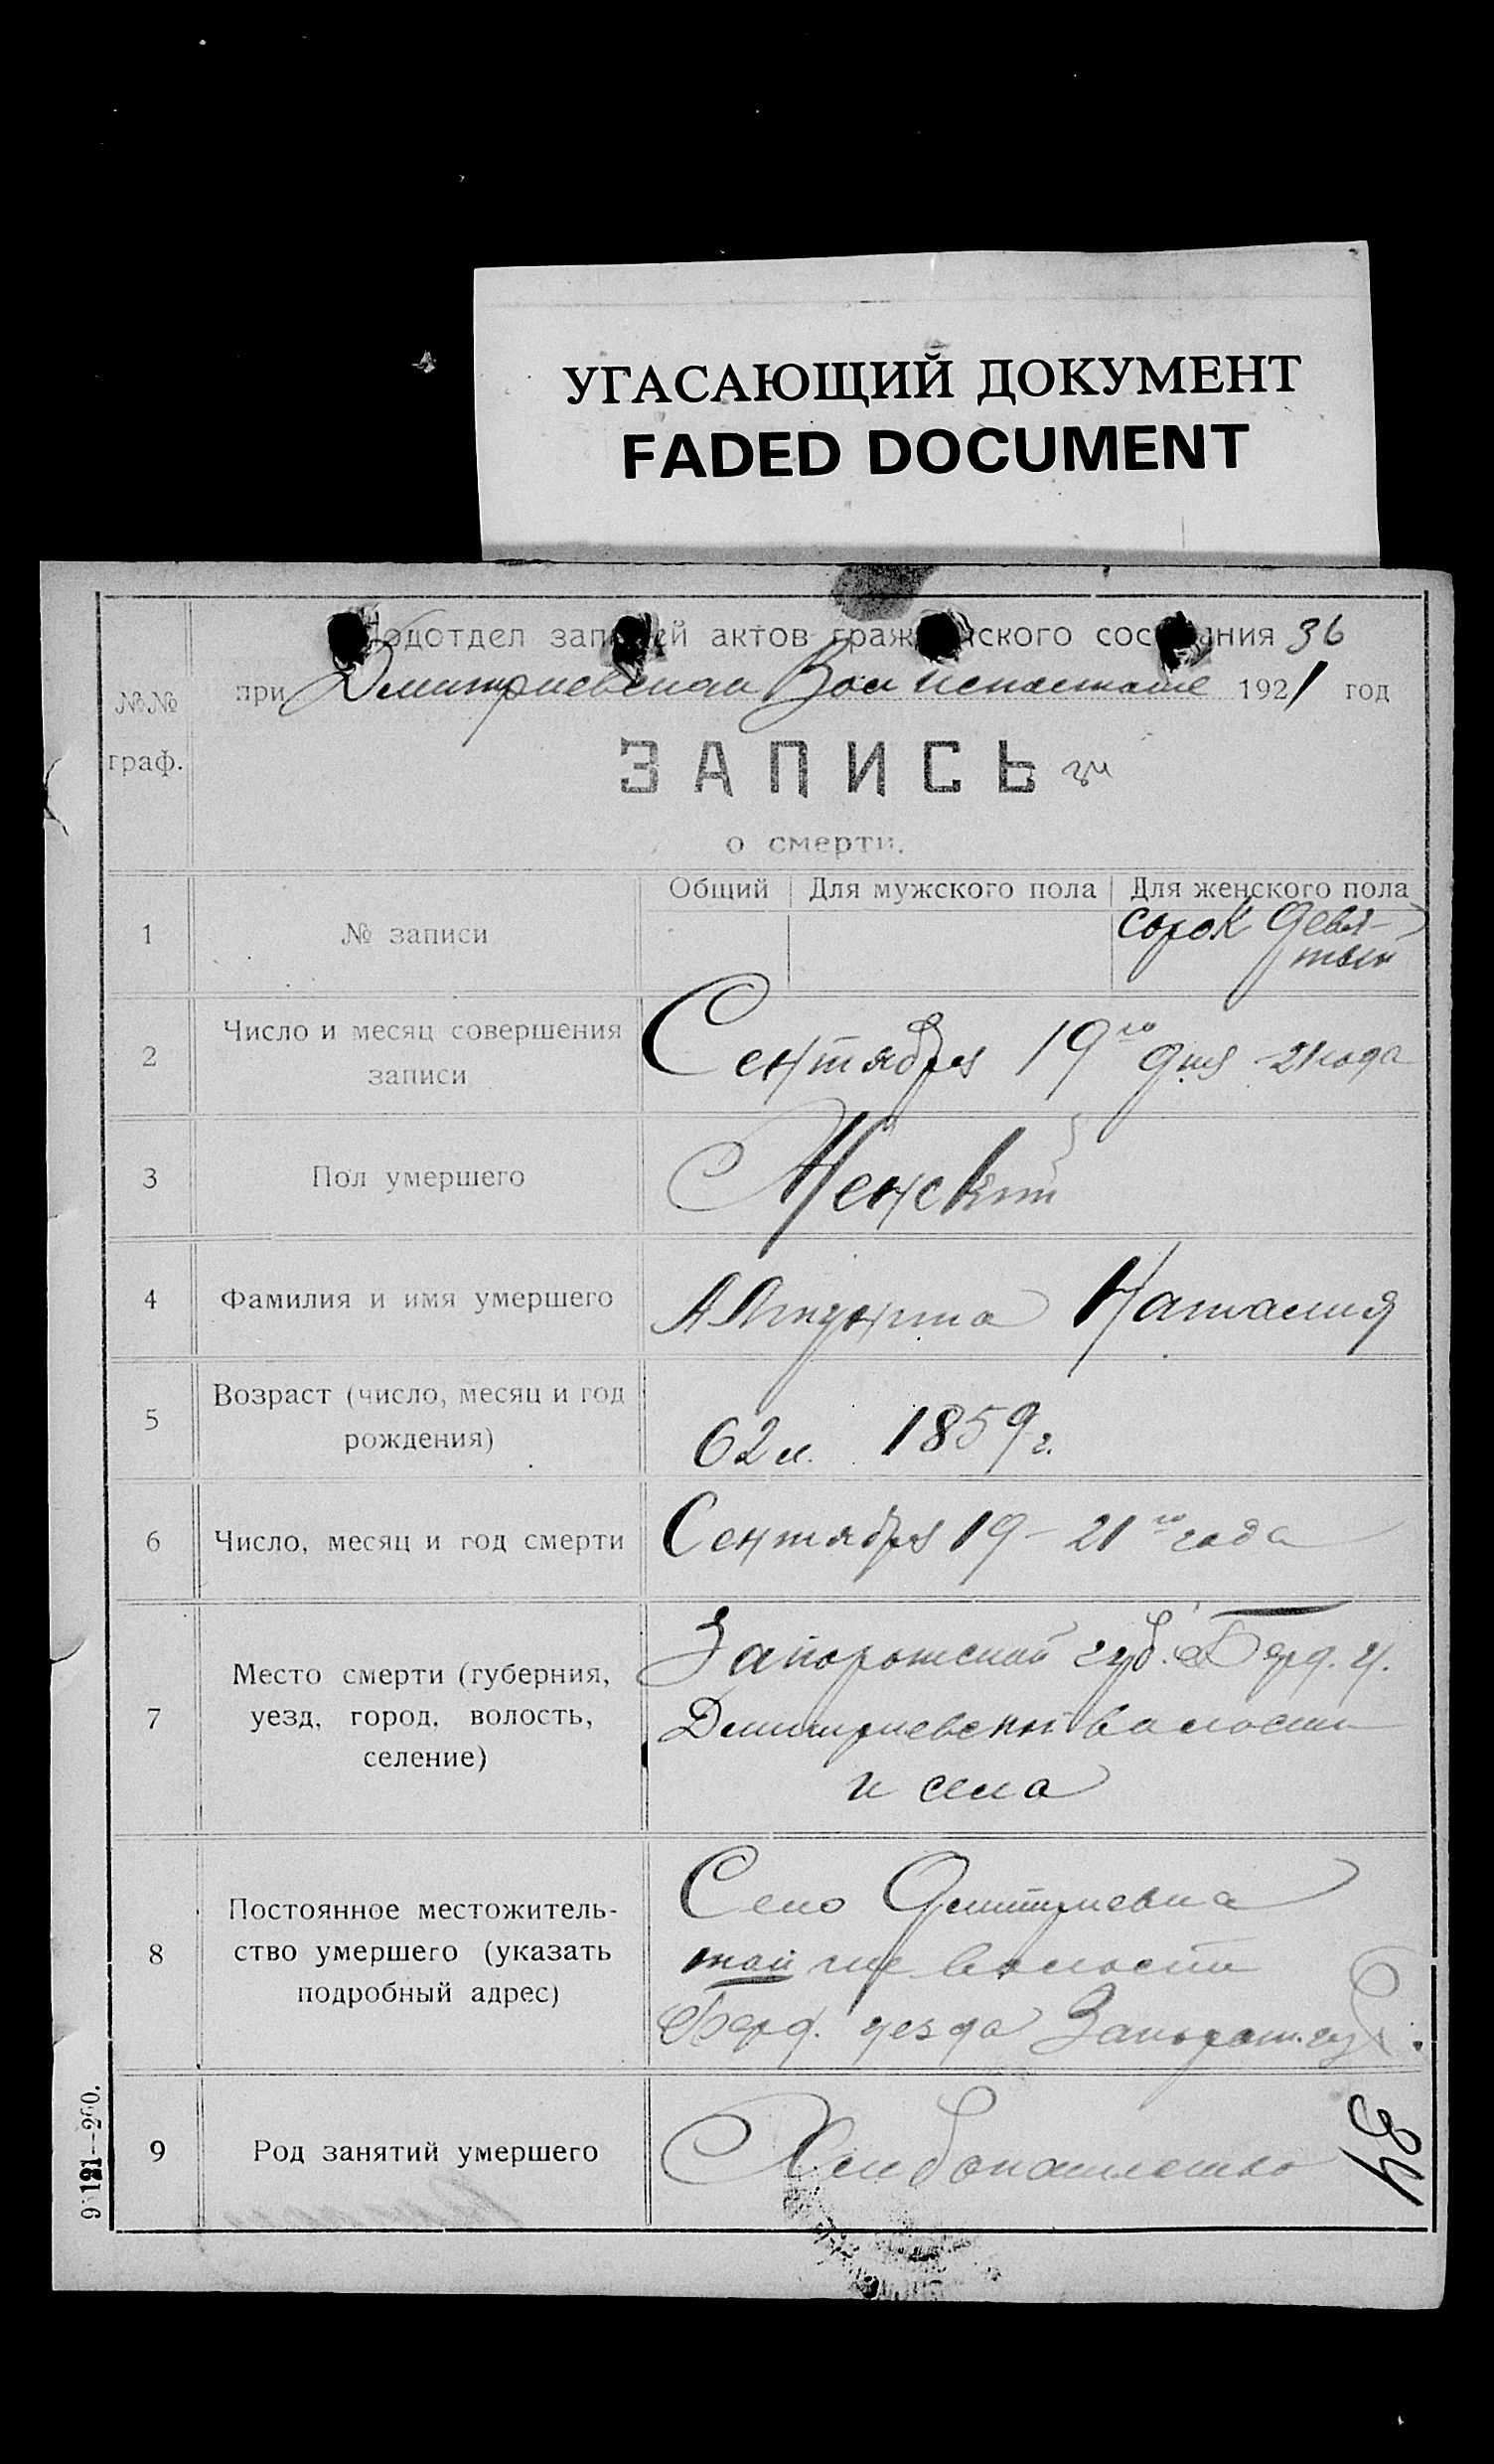 УГАСАЮЩИЙ ДОКУМЕНТ
FADED DOCUMENT
Подотдел записей актов гражданского состояния 36
при Дмитриевском Вол исполкоме 1921 год
№№
граф.
ЗАПИСЬ
о смерти.
Общий Для мужского пола Для женского пола
1 № записи сорок девя-
тый
2 Число и месяц совершения
записи
Сентября 19го дня 21 года
3 Пол умершего Женский
4 Фамилия и имя умершего Наталия
5 Возраст (число, месяц и год
рождения)
62 л. 1859 г.
6 Число, месяц и год смерти Сентября 19 - 21го года
7 Место смерти (губерния,
уезд, город, волость,
селение)
Запорожской губ. Берд. у.
Дмитриевской волости
и села
8 Постоянное местожитель-
ство умершего (указать
подробный адрес)
Село Дмитриевка
той же волости
Берд. уезда Запорож. губ.
9 Род занятий умершего Хлебопашество
34